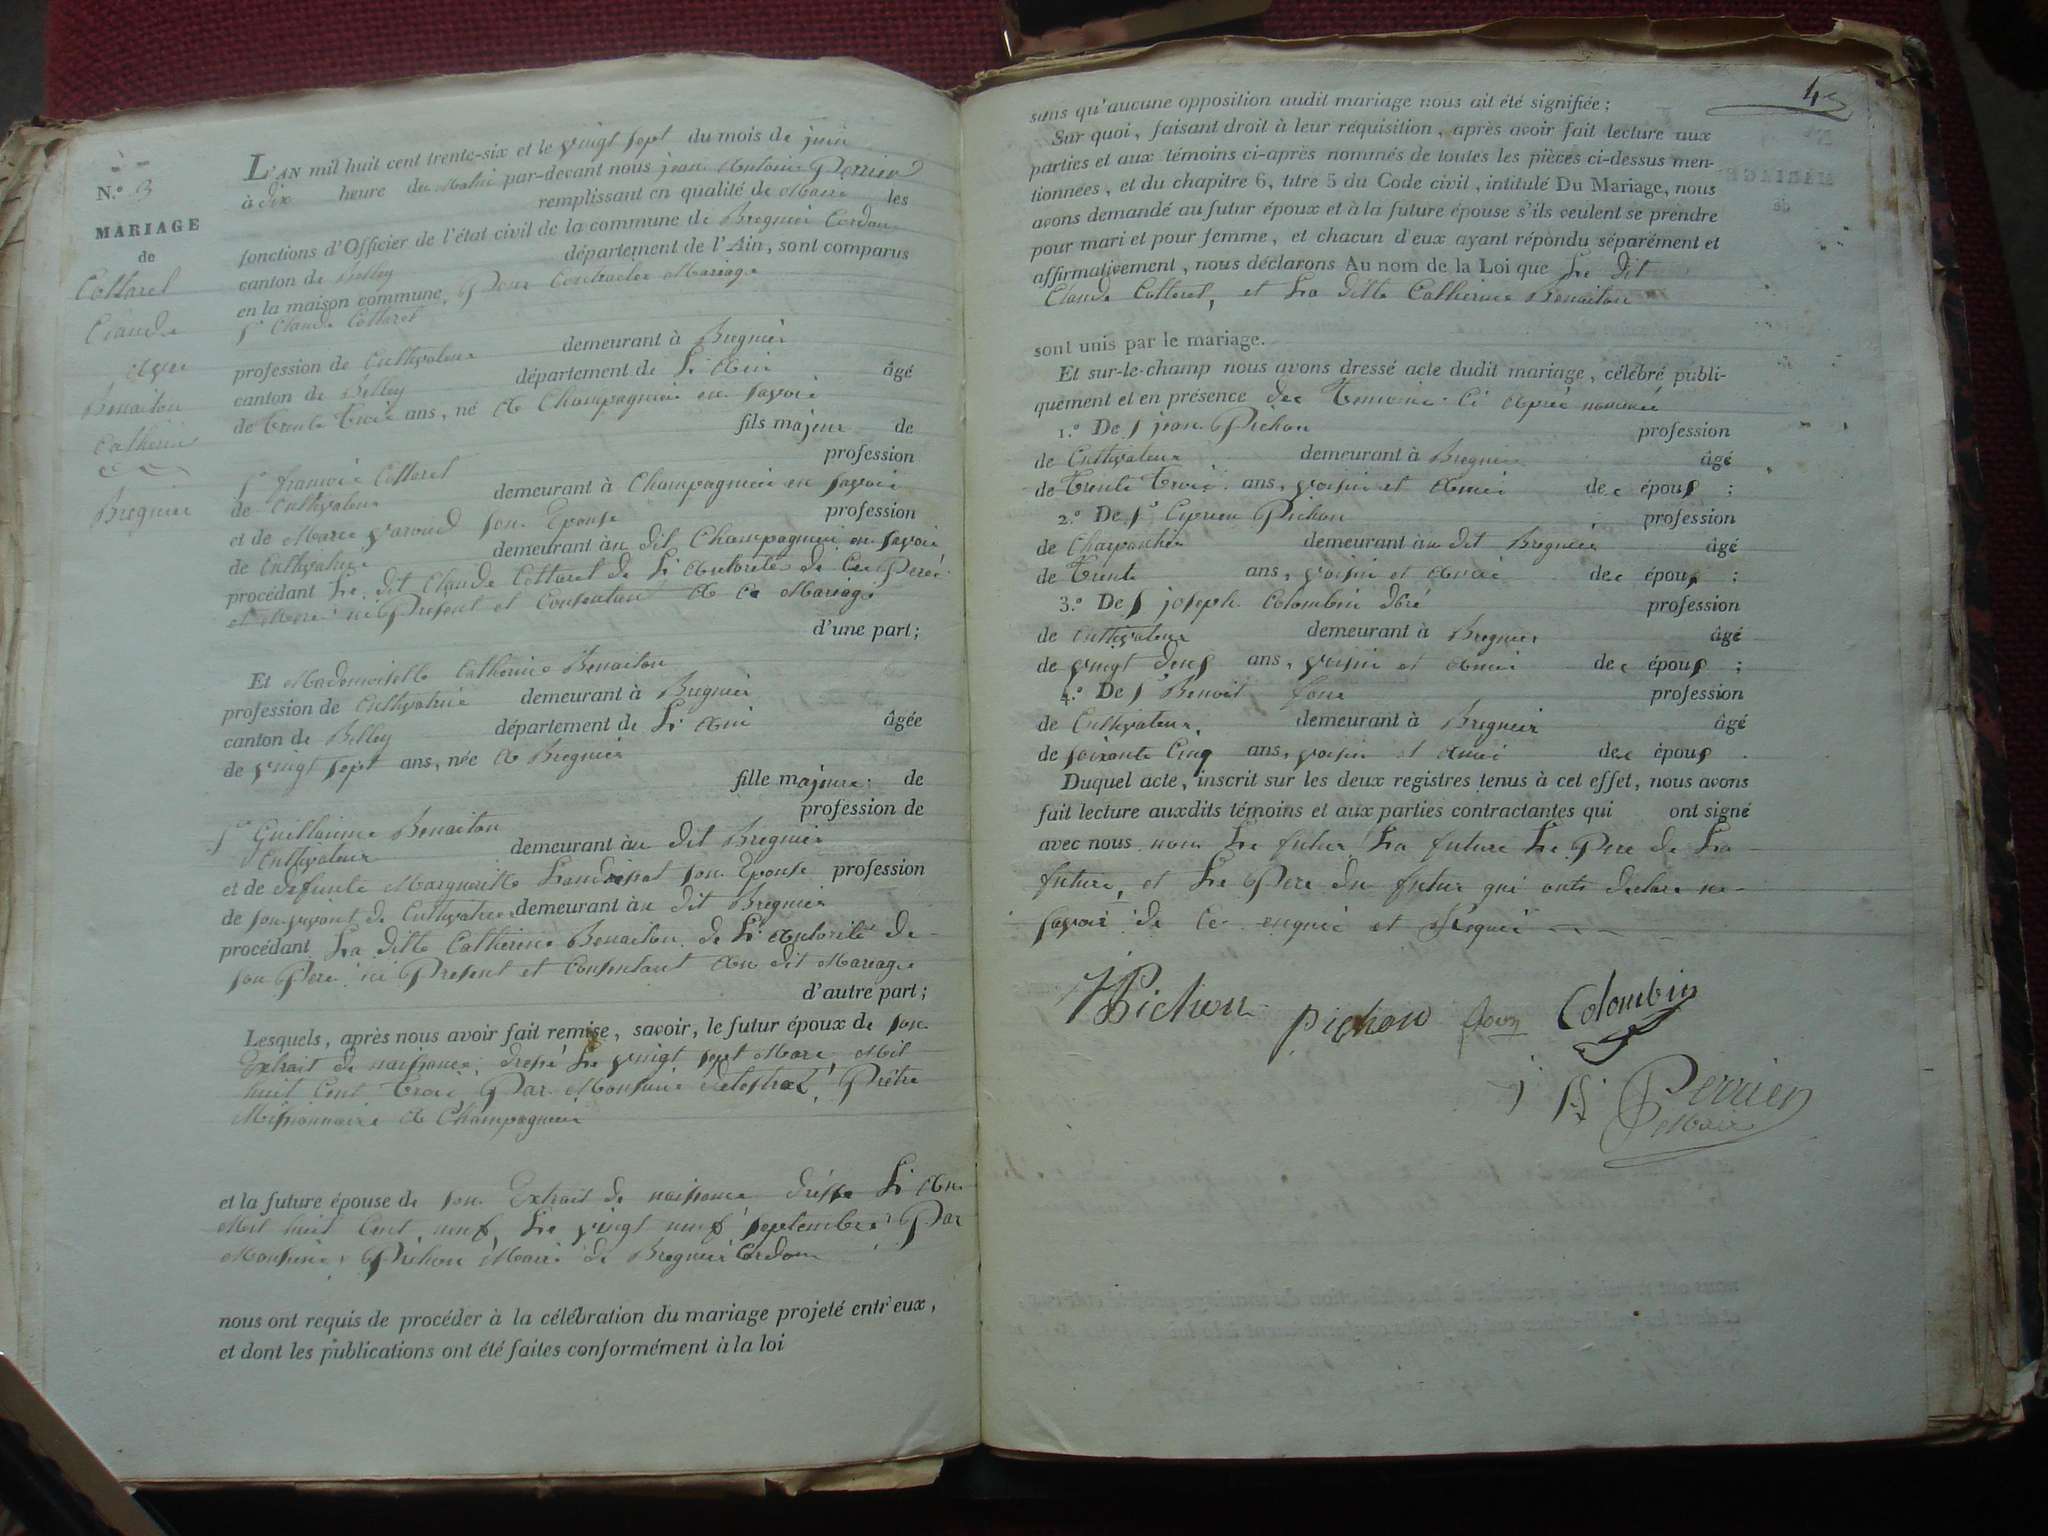 N.o 3
MARIAGE
de
Cottarel
Claude
avec
Benaiton
Catherine
Bregnier
L'AN mil huit cent trente-six et le vingt sept du mois de juin
à dix heure du Matin par-devant nous jean Antoine Perrier
remplissant en qualité de Maire les
fonctions d'Officier de l'état civil de la commune de Bregnier Cordon
canton de Belley département de l'Ain, sont comparus
en la maison commune, Pour Contracter Mariage
Sr Claude Cottarel
profession de Cultivateur demeurant à Bregnier
canton de Belley département de L'Ain âgé
de trente trois ans, né à Champagneux en Savoie
fils majeur de
Sr francois Cottarel profession
de Cultivateur demeurant à Champagneux en Savoie
et de Marie son Epouse profession
de Cultivatrice demeurant au dit Champagneux en Savoie
procédant Le dit Claude Cottarel de L'Autorité de Ces Pere
et Mere ici Present et Consentant à Ce Mariage
d'une part;
Et Mademoiselle Catherine Benaiton
profession de Cultivatrice demeurant à Bregnier
canton de Belley département de L'Ain âgée
de vingt sept ans, née à Bregnier
fille majeure de
Sr Guillaume Benaiton profession de
Cultivateur demeurant au dit Bregnier
et de defunte Marguerite son Epouse profession
de son vivant de Cultivatrice demeurant au dit Bregnier
procédant La ditte Catherine Benaiton de L'Autorité de
son Pere ici Present et Consentant Au dit Mariage
d'autre part;
Lesquels, après nous avoir fait remise, savoir, le futur époux de son
Extrait de naissance dressé Le vingt sept Mars Mil
huit Cent trois Par Monsieur Prêtre
Missionnaire à Champagneux
et la future épouse de son Extrait de naissance dressé L'An
Mil huit Cent neuf Le vingt neuf septembre Par
Monsieur Pichon Maire de Bregnier Cordon
nous ont requis de procéder à la célébration du mariage projeté entr'eux,
et dont les publications ont été faites conformément à la loi
4
sans qu'aucune opposition audit mariage nous ait été signifiée;
Sur quoi, faisant droit à leur réquisition, après avoir fait lecture aux
parties et aux témoins ci-après nommés de toutes les pièces ci-dessus men-
tionnées, et du chapitre 6, titre 5 du Code civil, intitulé Du Mariage, nous
avons demandé au futur époux et à la future épouse s'ils veulent se prendre
pour mari et pour femme, et chacun d'eux ayant répondu séparément et
affirmativement, nous déclarons Au nom de la Loi que Le dit
Claude Cotterel, et La ditte Catherine Benaiton
sont unis par le mariage.
Et sur-le-champ nous avons dressé acte dudit mariage, célébré publi-
quement et en présence des Temoins Ci Après nommés
1.o De S jean Pichon profession
de Cultivateur demeurant à Bregnier âgé
de trente trois ans, voisin et Amis des époux ;
2.o De Sr Cyprien Pichon profession
de Charpentier demeurant au dit Bregnier âgé
de trente ans, voisin et Amis des époux ;
3.o De S joseph Colombin profession
de Cultivateur demeurant à Bregnier âgé
de vingt deux ans, voisin et Amis des époux ;
4.o De Sr Benoit profession
de Cultivateur demeurant à Bregnier âgé
de soixante Cinq ans, voisin et Amis des époux .
Duquel acte, inscrit sur les deux registres tenus à cet effet, nous avons
fait lecture auxdits témoins et aux parties contractantes qui ont signé
avec nous non Le futur La future Le Pere de La
future, et Le Pere du futur qui onts declare ne
savoir de Ce enquis et Requis
Pichon Pichon Colombin
j A Perrier
Maire